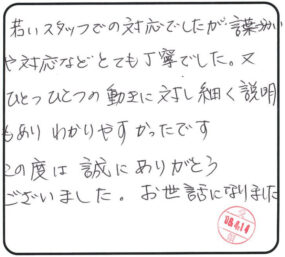 若いスタッフでの対応でしたが言葉づかい
や対応などとても丁寧でした。又
ひとつひとつの動作に対し細く説明
もあり わかりやすかったです
この度は誠にありがとう
ございました。お世話になりました
08.6.14